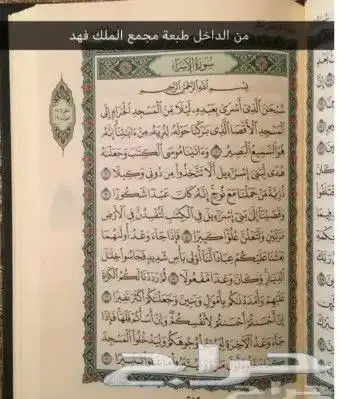 من الداخل طبعة مجمع الملك فهد
سُورَةُ الإِسْرَاءِ
بِسْمِ اللَّهِ الرَّحْمَٰنِ الرَّحِيمِ
سُبْحَٰنَ الَّذِي أَسْرَىٰ بِعَبْدِهِ لَيْلًا مِّنَ الْمَسْجِدِ الْحَرَامِ إِلَى
الْمَسْجِدِ الْأَقْصَا الَّذِي بَٰرَكْنَا حَوْلَهُ لِنُرِيَهُ مِنْ ءَايَٰتِنَا إِنَّهُ
هُوَ السَّمِيعُ الْبَصِيرُ ١ وَءَاتَيْنَا مُوسَى الْكِتَٰبَ وَجَعَلْنَٰهُ
هُدًى لِّبَنِي إِسْرَٰٓءِيلَ أَلَّا تَتَّخِذُوا مِن دُونِي وَكِيلًا ٢
ذُرِّيَّةَ مَنْ حَمَلْنَا مَعَ نُوحٍ إِنَّهُ كَانَ عَبْدًا شَكُورًا ٣
وَقَضَيْنَا إِلَىٰ بَنِي إِسْرَٰٓءِيلَ فِي الْكِتَٰبِ لَتُفْسِدُنَّ فِي الْأَرْضِ
مَرَّتَيْنِ وَلَتَعْلُنَّ عُلُوًّا كَبِيرًا ٤ فَإِذَا جَاءَ وَعْدُ أُولَىٰهُمَا
بَعَثْنَا عَلَيْكُمْ عِبَادًا لَّنَا أُولِي بَأْسٍ شَدِيدٍ فَجَاسُوا خِلَٰلَ
الدِّيَارِ وَكَانَ وَعْدًا مَّفْعُولًا ٥ ثُمَّ رَدَدْنَا لَكُمُ الْكَرَّةَ
عَلَيْهِمْ وَأَمْدَدْنَٰكُم بِأَمْوَٰلٍ وَبَنِينَ وَجَعَلْنَٰكُمْ أَكْثَرَ نَفِيرًا ٦
إِنْ أَحْسَنتُمْ أَحْسَنتُمْ لِأَنفُسِكُمْ وَإِنْ أَسَأْتُمْ فَلَهَا فَإِذَا
جَاءَ وَعْدُ الْآخِرَةِ لِيَسُـُٔوا وُجُوهَكُمْ وَلِيَدْخُلُوا الْمَسْجِدَ
كَمَا دَخَلُوهُ أَوَّلَ مَرَّةٍ وَلِيُتَبِّرُوا مَا عَلَوْا تَتْبِيرًا ٧
حراج